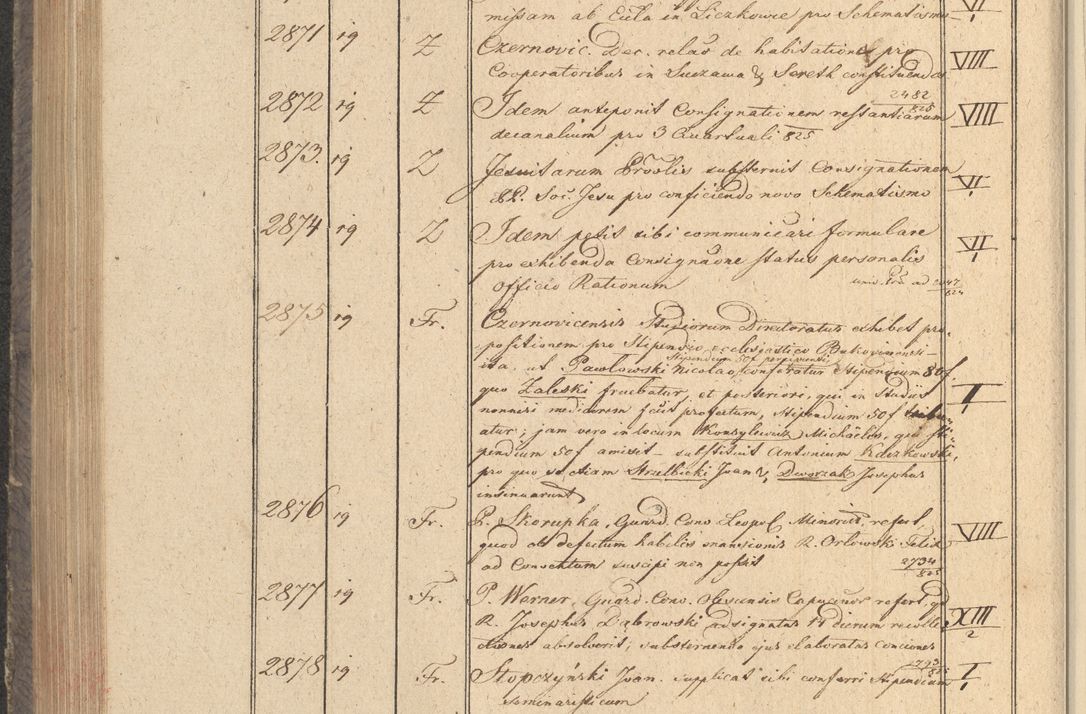 missam ab Eccla in Liczkowce pro Schematismo VI
2871 19 Z Czernovic. Dec. relão de habitatione pro VIII
Cooperatoribus in Suczawa & Sereth constituendos
2872 19 Z Idem anteponit Consignationem restantiarum 2482/825 VIII
decanalium pro 3 Quartuali 825
2873. 19 Z Jesuitarum Provlis substernit Consignationem VI
PP. Soc. Jesu pro conficiendo novo Schematismo
2874 19 Z Idem petit sibi communicari formulare VI
pro exhibenda Consignãone status personalis
Officio Rationum
2875 19 Fr. Czernovicensis Studiorum Directoratus exhibet pro-
positionem pro Stipendio ecclesiastico Bukovinensi
Stipendium 50f percipienti
ita, ut Pawlowski Nicolao conferatur Stipendium 80f I
quo Zaleski fruebatur, et posteriori, qui in Studiis
nonnisi mediocrem fecit profectum, Stipendium 50f
atur; jam vero in locum Michaelis, qui sti-
pendium 50f amisit substituit Antonium
pro quo et etiam Joan &, Dworzak Josephus
insinuarunt
2876 19 Fr. P. Skorupka, Guard. Conv. Leopol. Minorit. refert, VIII
quod ob defectum habilis mansionis R. Orlowski Felix
ad Conventum suscipi non possit 2734/825
2877 19 Fr. P. Werner, Guard. Conv. Capucinor refert, qd XIII/2
R. Josephus Dąbrowski adsignatas dierum recolle
ctiones absolverit, substernendo ejus elaboratas conciones
2878 19 Fr. Stopczyński Joan. supplicat sibi conferri Stipendium I
Seminaristicum